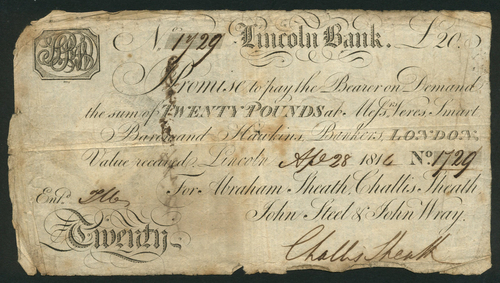 N. 1729 Lincoln Bank. £20.
Promise to pay the Bearer on Demand
the sum of TWENTY POUNDS at Messrs. Veres, Smart
Baron and Hawkins, Bankers, LONDON,
Value received, Lincoln Ap. 28 1814 No. 1729
For Abraham Sheath, Challis Sheath
Entd.
John Steel & John Wray.
Twenty
Challis Sheath